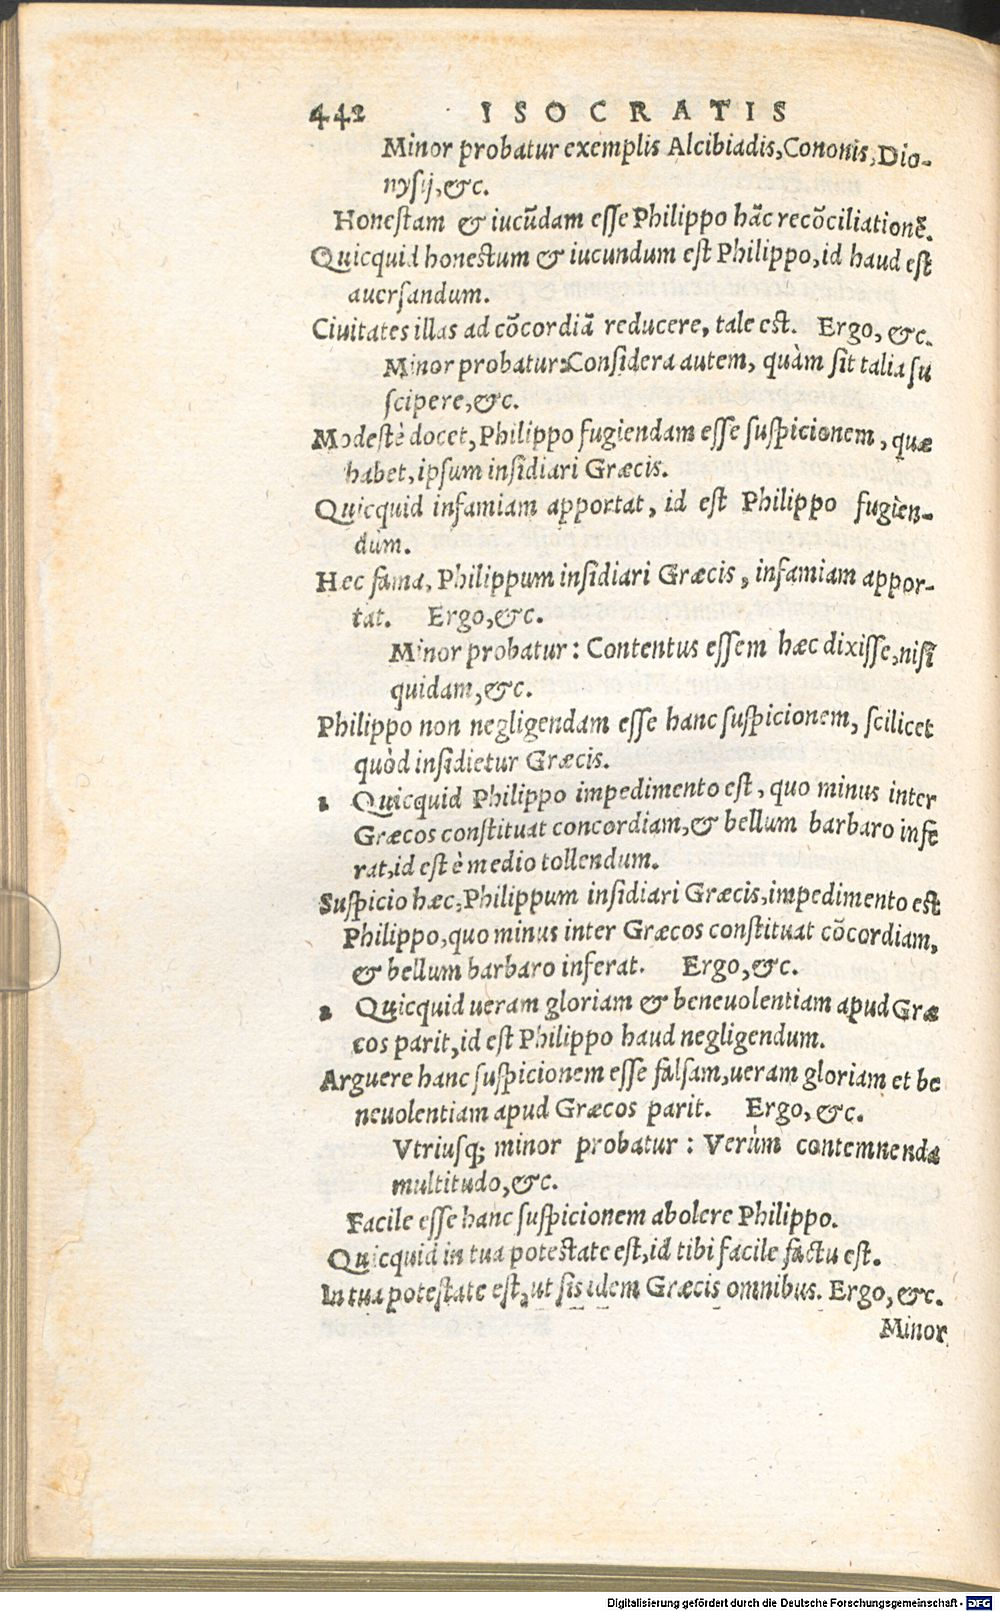 442 ISOCRATIS
Minor probatur exemplis Alcibiadis, Cononis, Dio-
nysij, &c.
Honestam & iucũdam esse Philippo hãc recõciliationẽ.
Quicquid honestum & iucundum est Philippo, id haud est
auersandum.
Ciuitates illas ad cõcordiã reducere, tale est. Ergo, &c.
Minor probatur: Considera autem, quàm sit talia su
scipere, &c.
Modestè docet, Philippo fugiendam esse suspicionem, quæ
habet, ipsum insidiari Græcis.
Quicquid infamiam apportat, id est Philippo fugien-
dum.
Hæc fama, Philippum insidiari Græcis, infamiam appor-
tat. Ergo, &c.
Minor probatur: Contentus essem hæc dixisse, nisi
quidam, &c.
Philippo non negligendam esse hanc suspicionem, scilicet
quòd insidietur Græcis.
1 Quicquid Philippo impedimento est, quo minus inter
Græcos constituat concordiam, & bellum barbaro infe
rat, id est è medio tollendum.
Suspicio hæc, Philippum insidiari Græcis, impedimento est
Philippo, quo minus inter Græcos constituat cõcordiam,
& bellum barbaro inferat. Ergo, &c.
2 Quicquid ueram gloriam & beneuolentiam apud Græ
cos parit, id est Philippo haud negligendum.
Arguere hanc suspicionem esse falsam, ueram gloriam et be
neuolentiam apud Græcos parit. Ergo, &c.
Vtriusq; minor probatur: Verùm contemnenda
multitudo, &c.
Facile esse hanc suspicionem abolere Philippo.
Quicquid in tua potestate est, id tibi facile factu est.
In tua potestate est, ut sis idem Græcis omnibus. Ergo, &c.
Minor
Digitalisierung gefördert durch die Deutsche Forschungsgemeinschaft - DFG